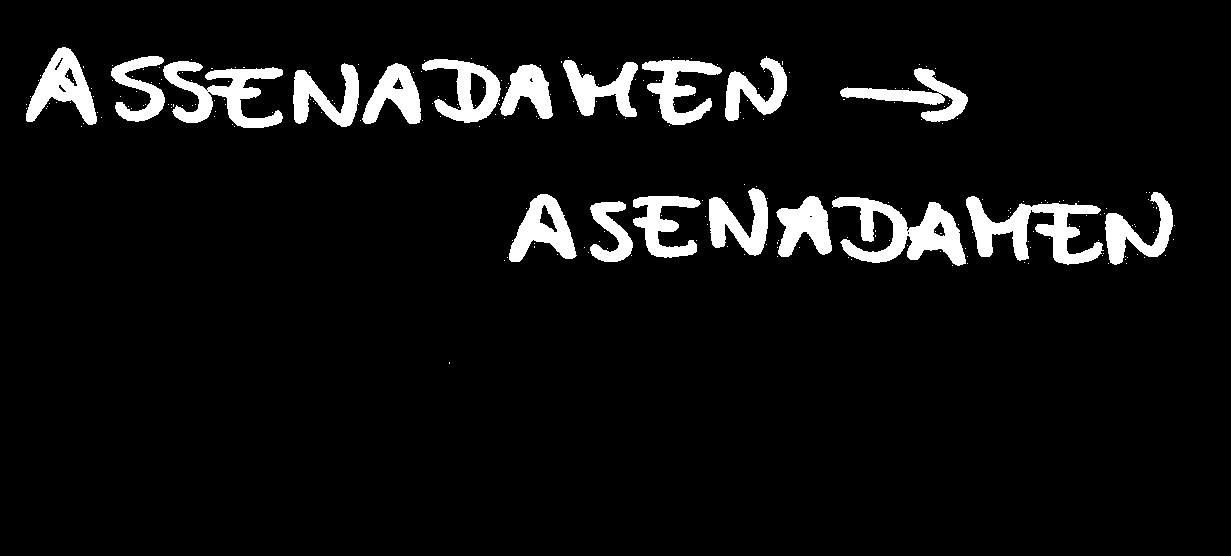 ASSENADAMEN →
ASENADAMEN